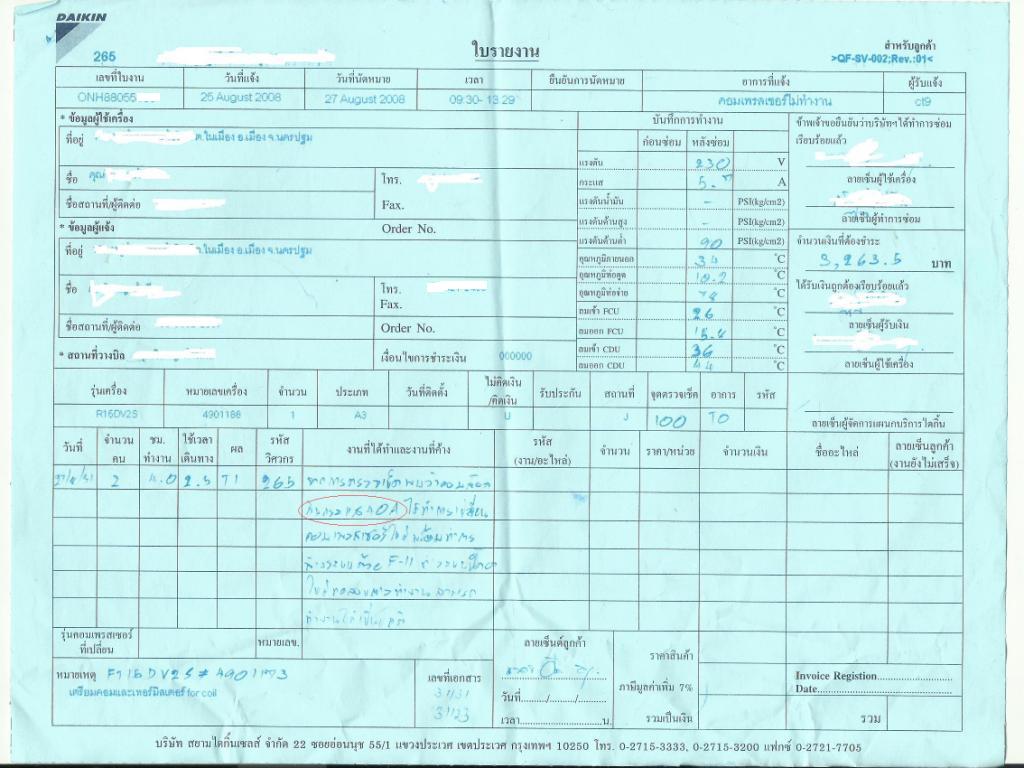 DAIKIN
265
ใบรายงาน
สำหรับลูกค้า
>QF-SV-002;Rev.:01<
เลขที่ใบงาน วันที่แจ้ง วันที่นัดหมาย เวลา ยืนยันการนัดหมาย อาการที่แจ้ง ผู้รับแจ้ง
ONH88055 25 August 2008 27 August 2008 09:30- 13:29 คอมเพรสเซอร์ไม่ทำงาน ct9
* ข้อมูลผู้ใช้เครื่อง
ที่อยู่ ต.ในเมือง อ.เมือง จ.นครปฐม
ชื่อ คุณ โทร.
ชื่อสถานที่/ผู้ติดต่อ Fax.
* ข้อมูลผู้แจ้ง Order No.
ที่อยู่ ต.ในเมือง อ.เมือง จ.นครปฐม
ชื่อ โทร.
Fax.
ชื่อสถานที่/ผู้ติดต่อ Order No.
* สถานที่วางบิล เงื่อนไขการชำระเงิน 000000
บันทึกการทำงาน
ก่อนซ่อม หลังซ่อม
แรงดัน 230 V
กระแส A
แรงดันน้ำมัน - PSI(kg/cm2)
แรงดันด้านสูง - PSI(kg/cm2)
แรงดันด้านต่ำ 90 PSI(kg/cm2)
อุณหภูมิภายนอก 34 °C
อุณหภูมิท่อดูด °C
อุณหภูมิท่อจ่าย °C
ลมเข้า FCU 26 °C
ลมออก FCU 15.4 °C
ลมเข้า CDU 36 °C
ลมออก CDU 44 °C
ข้าพเจ้าขอยืนยันว่าบริษัทฯได้ทำการซ่อม
เรียบร้อยแล้ว
ลายเซ็นผู้ใช้เครื่อง
ลายเซ็นผู้ทำการซ่อม
จำนวนเงินที่ต้องชำระ
3,263.5 บาท
ได้รับเงินถูกต้องเรียบร้อยแล้ว
ลายเซ็นผู้รับเงิน
ลายเซ็นผู้ใช้เครื่อง
ลายเซ็นผู้จัดการแผนกบริการไดกิ้น
รุ่นเครื่อง หมายเลขเครื่อง จำนวน ประเภท วันที่ติดตั้ง ไม่คิดเงิน/คิดเงิน รับประกัน สถานที่ จุดตรวจเช็ค อาการ รหัส
R15DV2S 4901188 1 A3 U J 100 TO
วันที่ จำนวนคน ชม.ทำงาน ใช้เวลาเดินทาง ผล รหัสวิศวกร งานที่ได้ทำและงานที่ค้าง รหัส (งาน/อะไหล่) จำนวน ราคา/หน่วย จำนวนเงิน ชื่ออะไหล่ ลายเซ็นลูกค้า (งานยังไม่เสร็จ)
27/8/51 2 4.0 2.5 T1 265
ได้ทำการเปลี่ยน
คอมเพรสเซอร์ใหม่พร้อมทำการ
ล้างระบบด้วย F-11
รุ่นคอมเพรสเซอร์ที่เปลี่ยน หมายเลข.
หมายเหตุ
เตรียมคอมและเทอร์มิสเตอร์ for coil
เลขที่เอกสาร
3131
3123
ลายเซ็นต์ลูกค้า
วันที่......../......../........
เวลา....................น.
ราคาสินค้า
ภาษีมูลค่าเพิ่ม 7%
รวมเป็นเงิน
Invoice Registion....................
Date....................
รวม
บริษัท สยามไดกิ้นเซลส์ จำกัด 22 ซอยอ่อนนุช 55/1 แขวงประเวศ เขตประเวศ กรุงเทพฯ 10250 โทร. 0-2715-3333, 0-2715-3200 แฟกซ์ 0-2721-7705